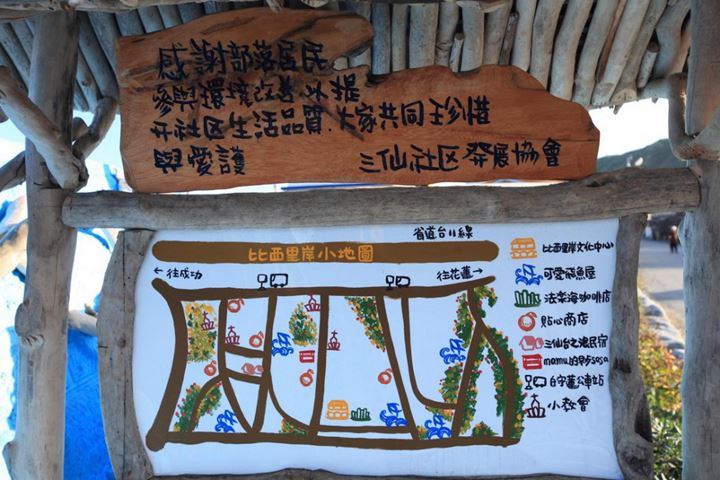 感謝部落居民
參與環境改善,水提
升社区生活品質,大家共同珍惜
與愛護 三仙社区發展協會
省道台11線
比西里岸小地圖
←往成功
往花蓮→
比西里岸文化中心
可愛飛魚屋
法楽海咖啡店
貼心商店
三仙台之浪民宿
mamu的
白守蓮公車站
小教會